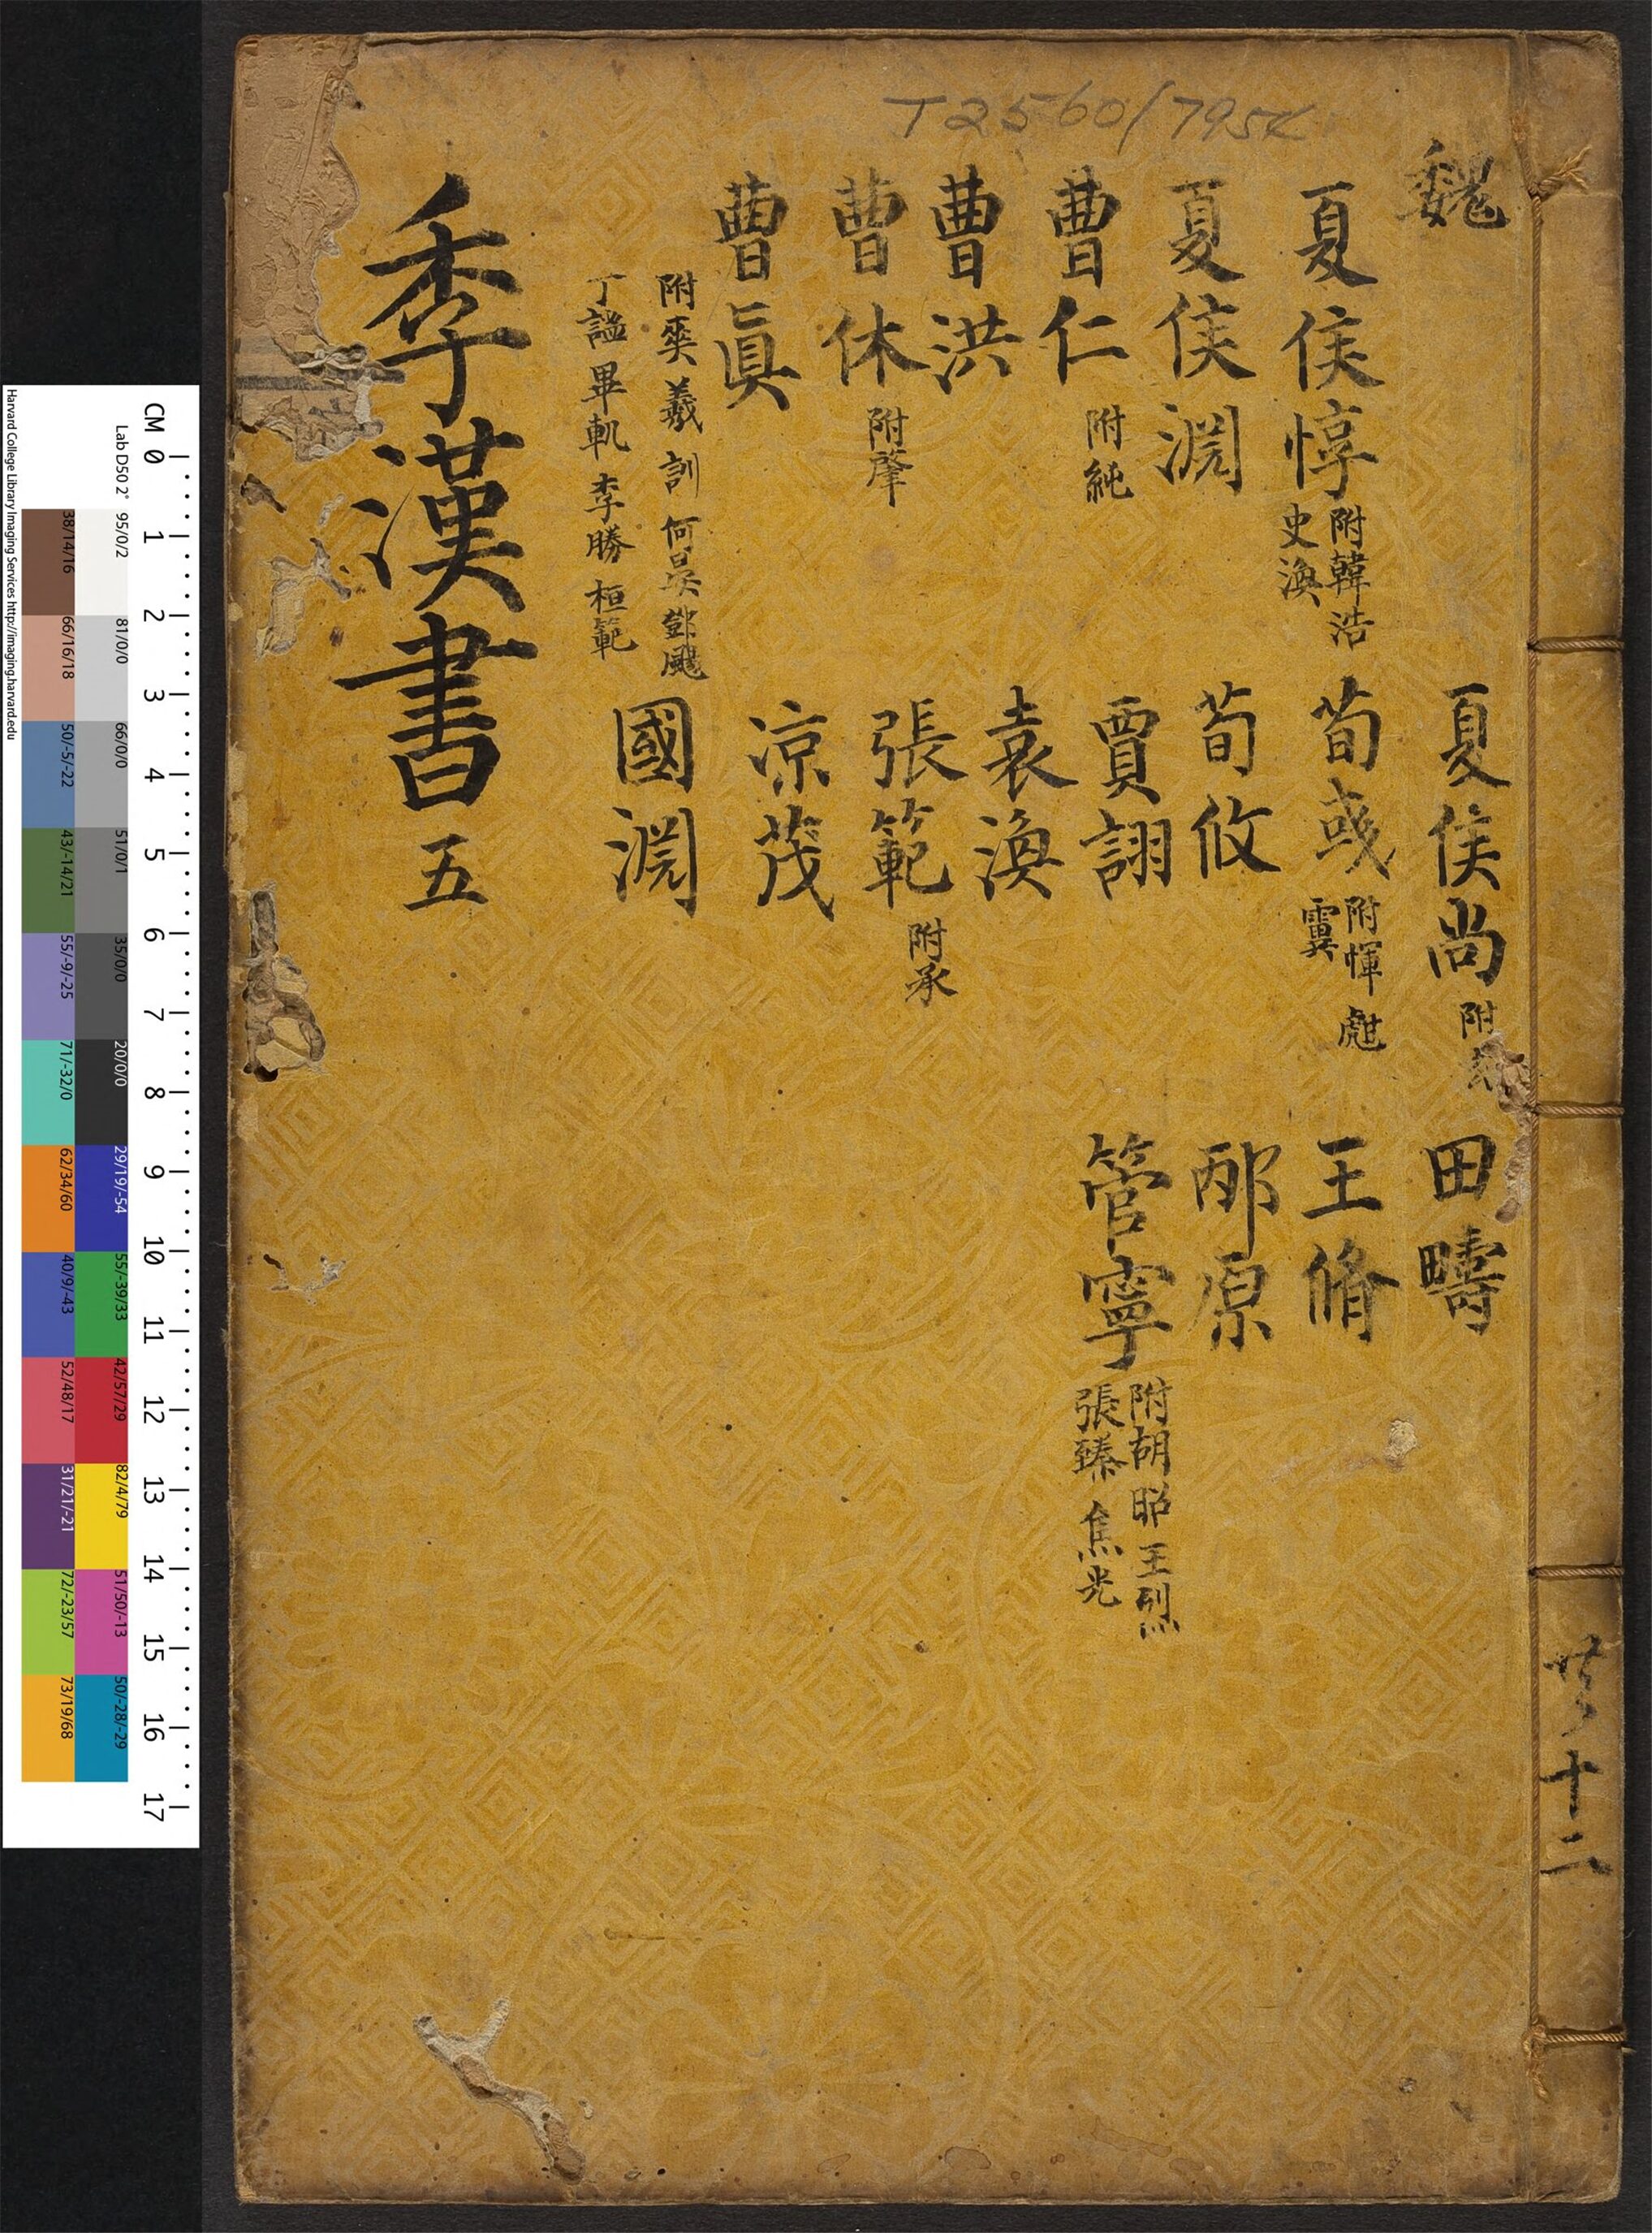 T2560/795k
魏
夏侯惇 附韓浩
史渙
夏侯淵
曹仁 附純
曹洪
曹休 附肇
曹眞
附爽 羲 訓 何晏 鄧颺
丁謐 畢軌 李勝 桓範
夏侯尚 附
荀彧 附惲 彪
荀攸
賈詡
袁渙
張範 附承
凉茂
國淵
田疇
王脩
邴原
管寧 附胡昭 王烈
張臻 焦光
季漢書 五
十二
CM 0 1 2 3 4 5 6 7 8 9 10 11 12 13 14 15 16 17
Lab D50 2°
95/0/2
81/0/0
66/0/0
51/0/1
35/0/0
20/0/0
29/19/-54
55/-39/33
42/57/29
82/4/79
51/50/-13
50/-28/-29
38/14/16
66/16/18
50/-5/-22
43/-14/21
55/-9/-25
71/-32/0
62/34/60
40/9/-43
52/48/17
31/21/-21
72/-23/57
73/19/68
Harvard College Library Imaging Services http://imaging.harvard.edu